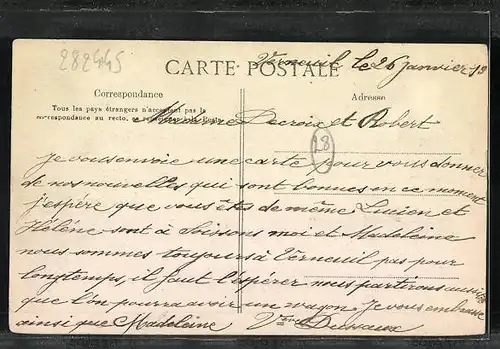 282445
Verneuil le 26 janvier 19
CARTE POSTALE
Correspondance
Adresse
Tous les pays étrangers n'acceptent pas la
correspondance au recto.
Madame Decroix et Robert
28
Je vous envoie une carte pour vous donner
de nos nouvelles qui sont bonnes en ce moment
j'espère que vous êtes de même Lucien et
Hélène sont à Soissons moi et Madeleine
nous sommes toujours à Verneuil pas pour
longtemps, il faut l'espérer nous partirons aussitôt
que l'on pourra avoir un wagon. Je vous embrasse
ainsi que Madeleine Vve